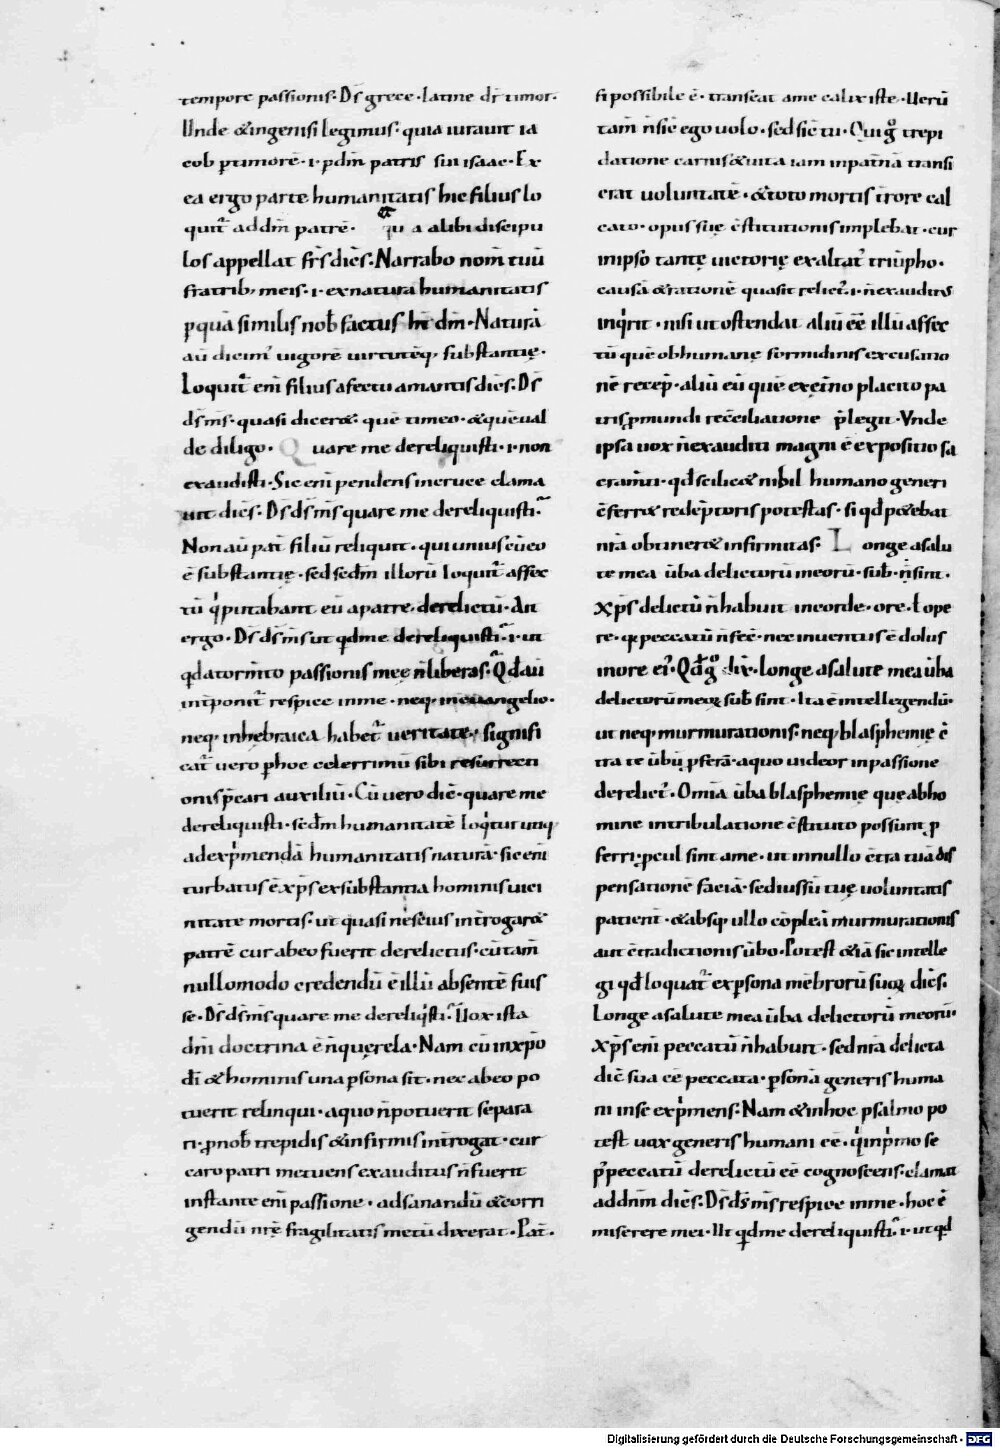 tempore passionis. Ds̄ grece. latine dr̄ timor.
Unde & in genesi legimus. quia iurauit ia
cob ꝑ timorē .i. ꝑ dm̄ patris sui isaac. Ex
ea ergo parte humanitatis hic filius lo
quit᷑ ad dm̄ patrē. Qu a alibi discipu
los appellat fr̄s dicēs. Narrabo nom̄ tuū
fratrib; meis .i. ex natura humanitatis
ꝑ quā similis nob̄ factus hr̄ dm̄. Naturā
aū dicim᷒ uigorē uirtutēq; substantię.
Loquit᷑ eni filius afectu amantis dicēs. Ds̄
ds̄ ms̄. quasi dicer&. quē timeo. & quē ual
de diligo. Quare me dereliquisti .i. non
exaudisti. Sic eni pendens in cruce clama
uit dicēs. Ds̄ ds̄ ms̄ quare me dereliquisti.
Non aū pat̄ filiū reliquit. qui unius cū eo
ē substantię. sed secdm̄ illorū loquit᷑ affec
tū qͥ putabant eū a patre derelictū. An
ergo. Ds̄ ds̄ ms̄ ut qd me dereliquisti .i. ut
qd a tormto passionis meę n̄ liberas. Qd aū
int̄ponit᷑ respice in me. neq; in euangelio.
neq; in hebraica habet᷑ ueritate. signifi
cat᷑ uero ꝑ hoc celerrimū sibi resurrecti
onis p̄cari auxiliū. Cū uero dic̄. quare me
dereliquisti. secdm̄ humanitatē loqͥtur utiq;
ad expͥmendā humanitatis naturā. sic eni
turbatus ē xp̄s ex substantia hominis uici
nitate mortis. ut quasi nescius introgar&
patrē cur ab eo fuerit derelictus. cū tam̄
nullomodo credendū ē illū absentē fuis
se. Ds̄ ds̄ ms̄ quare me dereliqͥsti. Uox ista
dn̄i doctrina ē n̄ querela. Nam cū in xp̄o
dī & hominis una ꝑsona sit. nec ab eo po
tuerit relinqui. a quo n̄ potuerit separa
ri. ꝓ nob̄ trepidis & infirmis introgat. cur
caro patri metuens exauditus n̄ fuerit
instante eni passione. ad sanandū & corri
gendū nr̄ę fragilitatis metū dixerat. Pat̄.
si possibile ē. transeat a me calix iste. Uerū
tam̄ n̄ sic̄ ego uolo. sed sic̄ tu. Qui gͦ trepi
datione carnis & uita iam in patnā transi
erat uoluntatē. & toto mortis t̄rore cal
cato. opus suę c̄stitutionis implebat. cur
in ipso tantę uictorię exaltat᷑ triūpho.
causā & rationē quasit relict᷑ .i. n̄ exauditus
inqͥrit. nisi ut ostendat aliū eē illū affec
tū quē ob humanę formidinis excusatio
nē recep̄. aliū eū quē ex eīno placito pa
tris ꝓ mundi rec̄ciliatione p̄legit. Unde
ipsa uox n̄ exauditi magni ē expositio sa
cramti. qd̄ scilic& nihil humano generi
c̄ferr& redēptoris potestas. si qd̄ pēbat
nr̄a obtiner& infirmitas. Longe a salu
te mea ūba delictorū meorū. sub̄. n̄ sint.
Xp̄s delictū n̄ habuit in corde. ore. ł ope
re. q; peccatū n̄ fec̄. nec inuentus ē dolus
in ore ei᷒. Qd̄ gͦ dix̄. longe a salute mea ūba
delictorū meoꝝ sub̄ sint. Ita ē intellegendū.
ut neq; murmurationis. neq; blasphemię c̄
tra te ūbū ꝓferā. a quo uideor in passione
derelict᷒. Omia ūba blasphemię que ab ho
mine in tribulatione c̄stituto possunt ꝓ
ferri. ꝓcul sint a me. ut in nullo c̄tra tuā dis
pensationē faciā. sed iussū tuę uoluntatis
patient̄. & absq; ullo cōplēā murmurationis
aut c̄tradictionis ūbo. Potest & iā sic intelle
gi qd̄ loquat᷑ ex ꝑsona mēbrorū suoꝝ dicēs.
Longe a salute mea ūba delictorū meorū.
Xp̄s eni peccatū n̄ habuit. sed nr̄a delicta
dic̄ sua eē peccata. ꝑsonā generis huma
ni in se expͥmens. Nam & in hoc psalmo po
test uox generis humani eē. qͥ in pͥmo se
ꝓ peccatū derelictū eē cognoscens. clamat
ad dn̄m dicēs. Ds̄ ds̄ ms̄ respice in me. hoc ē
miserere mei. Ut qd me dereliquisti .i. ut qd
Digitalisierung gefördert durch die Deutsche Forschungsgemeinschaft - DFG